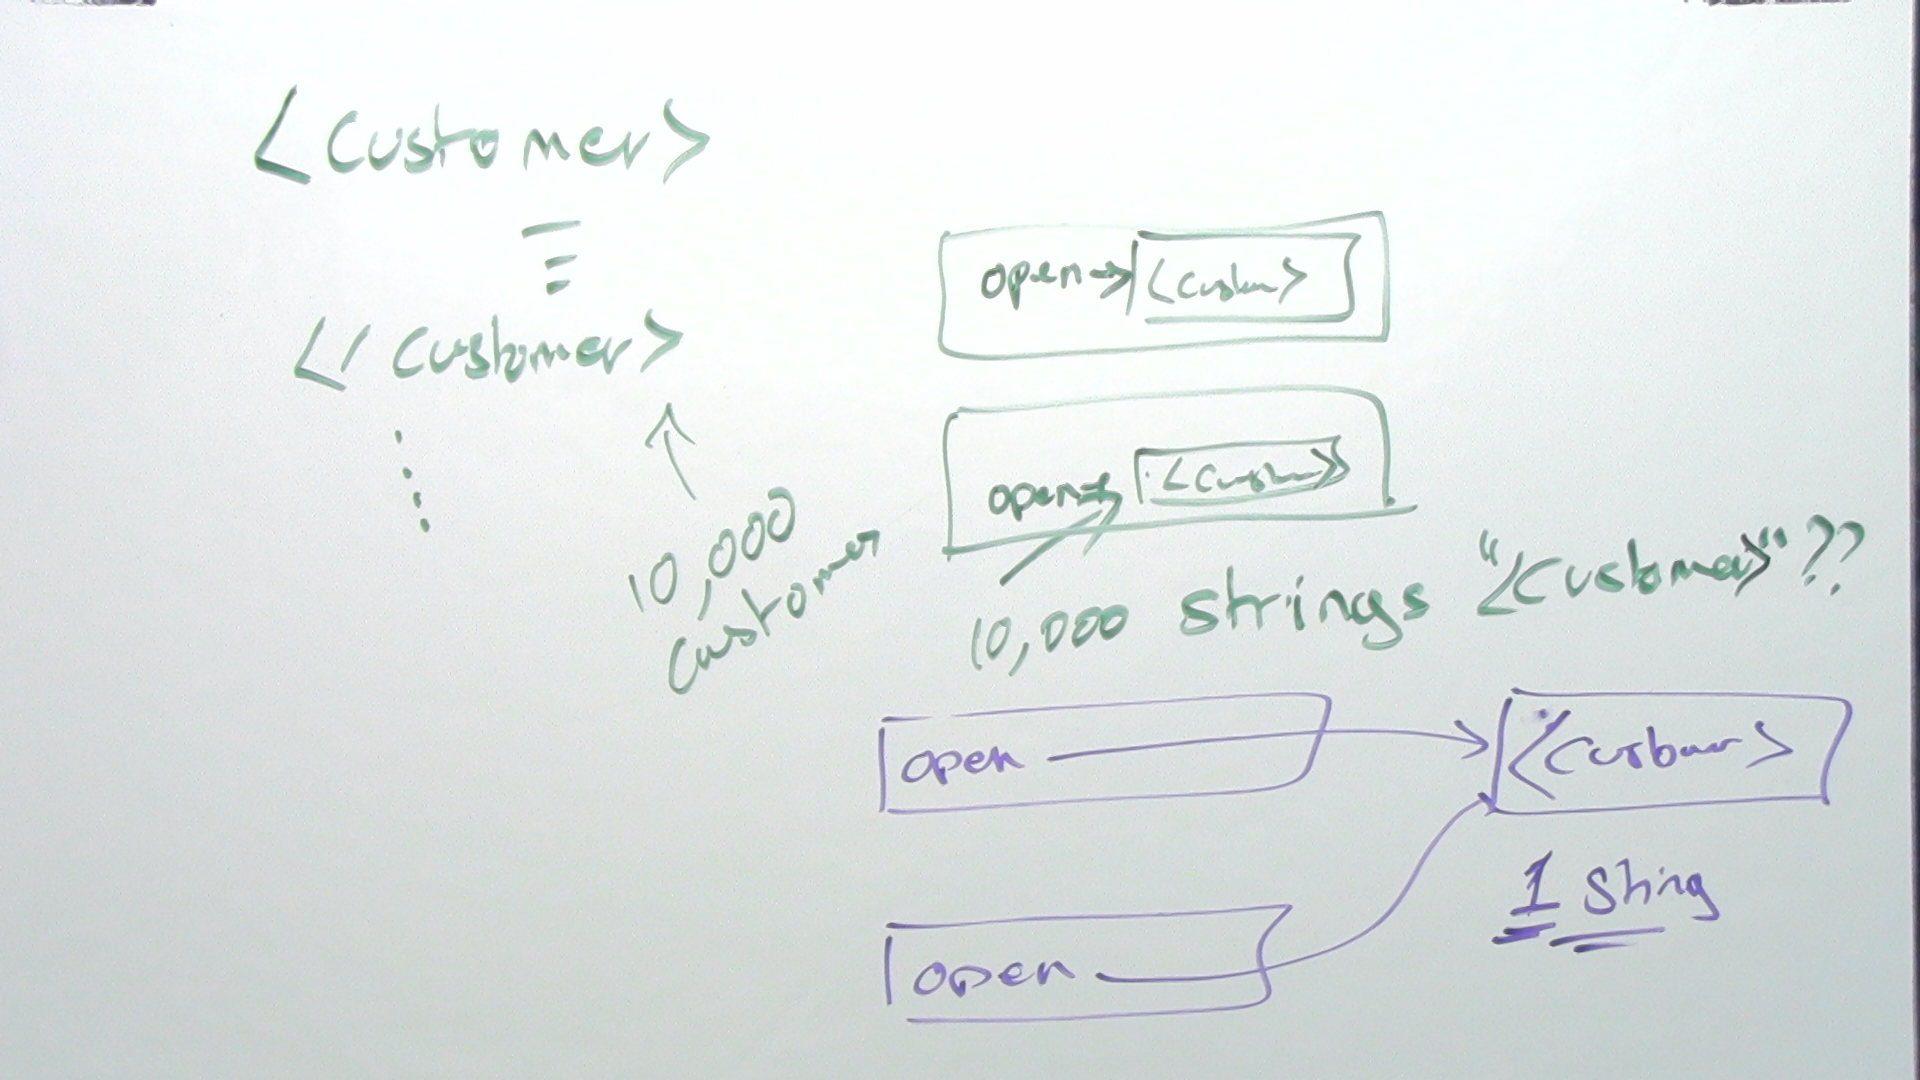 <customer>
</ customer>
10,000
customer
open → <custom>
open → <custom>
10,000 strings "<customer>"??
open
<customer>
open
1 string